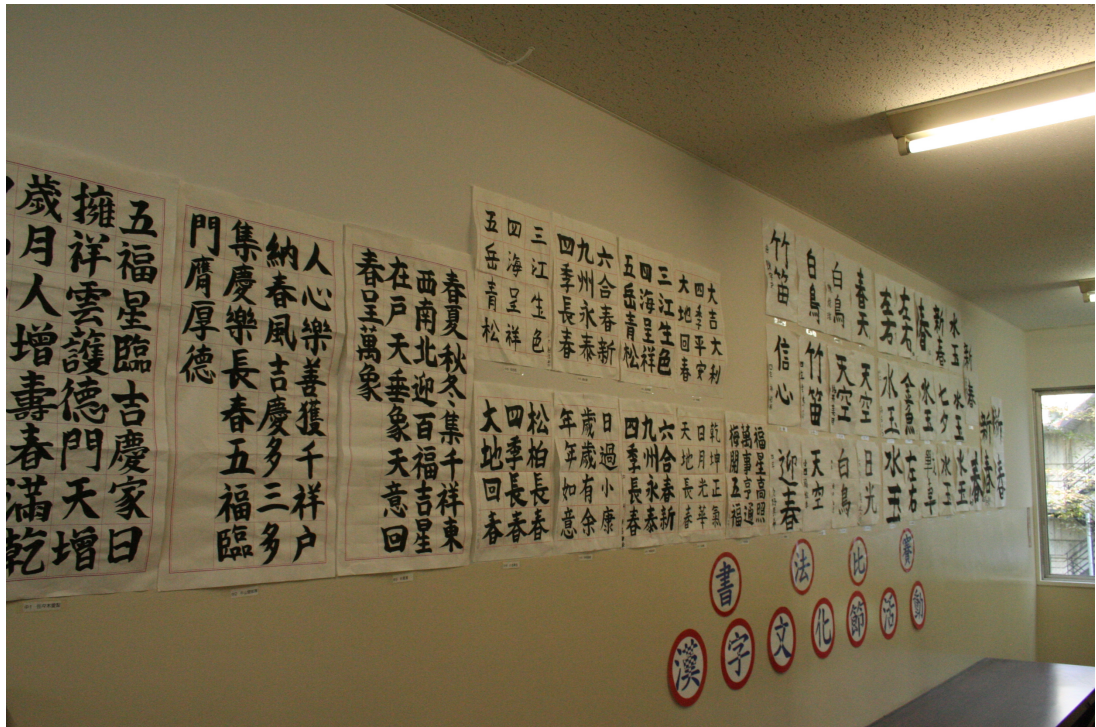 五福星臨吉慶家日
擁祥雲護德門天增
歲月人增壽春滿乾
人心樂善獲千祥户
納春風吉慶多三多
集慶樂長春五福臨
門膺厚德
春夏秋冬集千祥東
西南北迎百福吉星
在戸天垂象天意回
春呈萬象
三江生色
四海呈祥
五岳青松
六合春新
九州永泰
四季長春
三江生色
四海呈祥
五岳青松
大吉大利
四季平安
大地回春
松柏長春
四季長春
大地回春
日過小康
歲歲有余
年年如意
六合春新
九州永泰
四季長春
乾坤正氣
日月光華
天地長春
福星高照
萬事亨通
梅開五福
竹笛
白鳥
白鳥
春天
左右
左右
春
新春
水玉
新春
信心
竹笛
天空
天空
水玉
金魚
水玉
七夕
水玉
迎春
天空
白鳥
日光
水玉
左右
水玉
水玉
春
新春
新春
書法比賽
漢字文化節活動